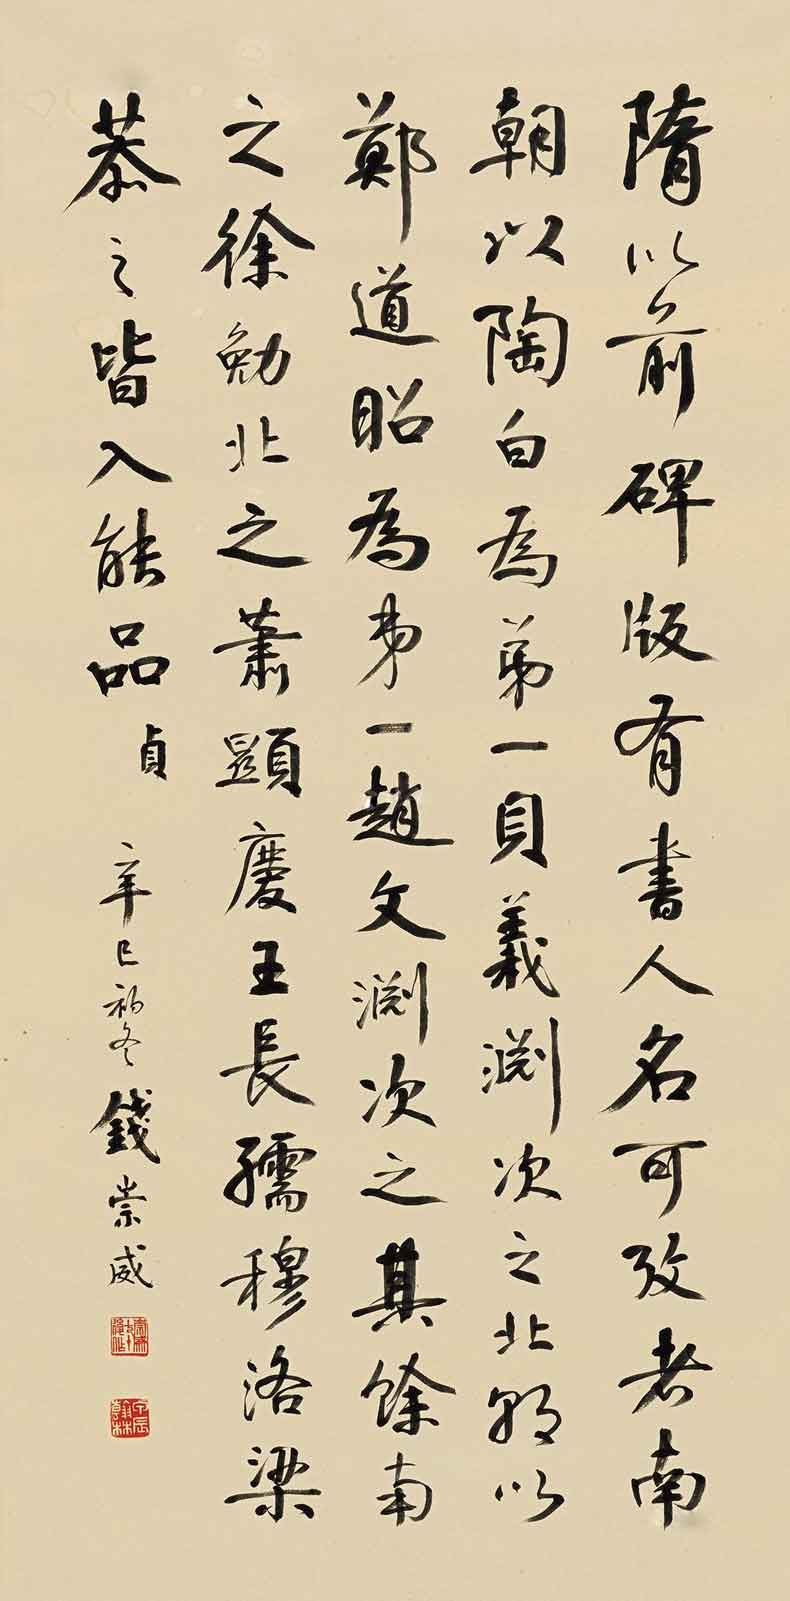 隋以前碑版有書人名可攷者南
朝以陶白為弟一貝義淵次之北朝以
鄭道昭為弟一趙文淵次之其餘南
之徐勉北之蕭顯慶王長孺穆洛梁
恭之皆入能品貞
辛巳初冬錢崇威